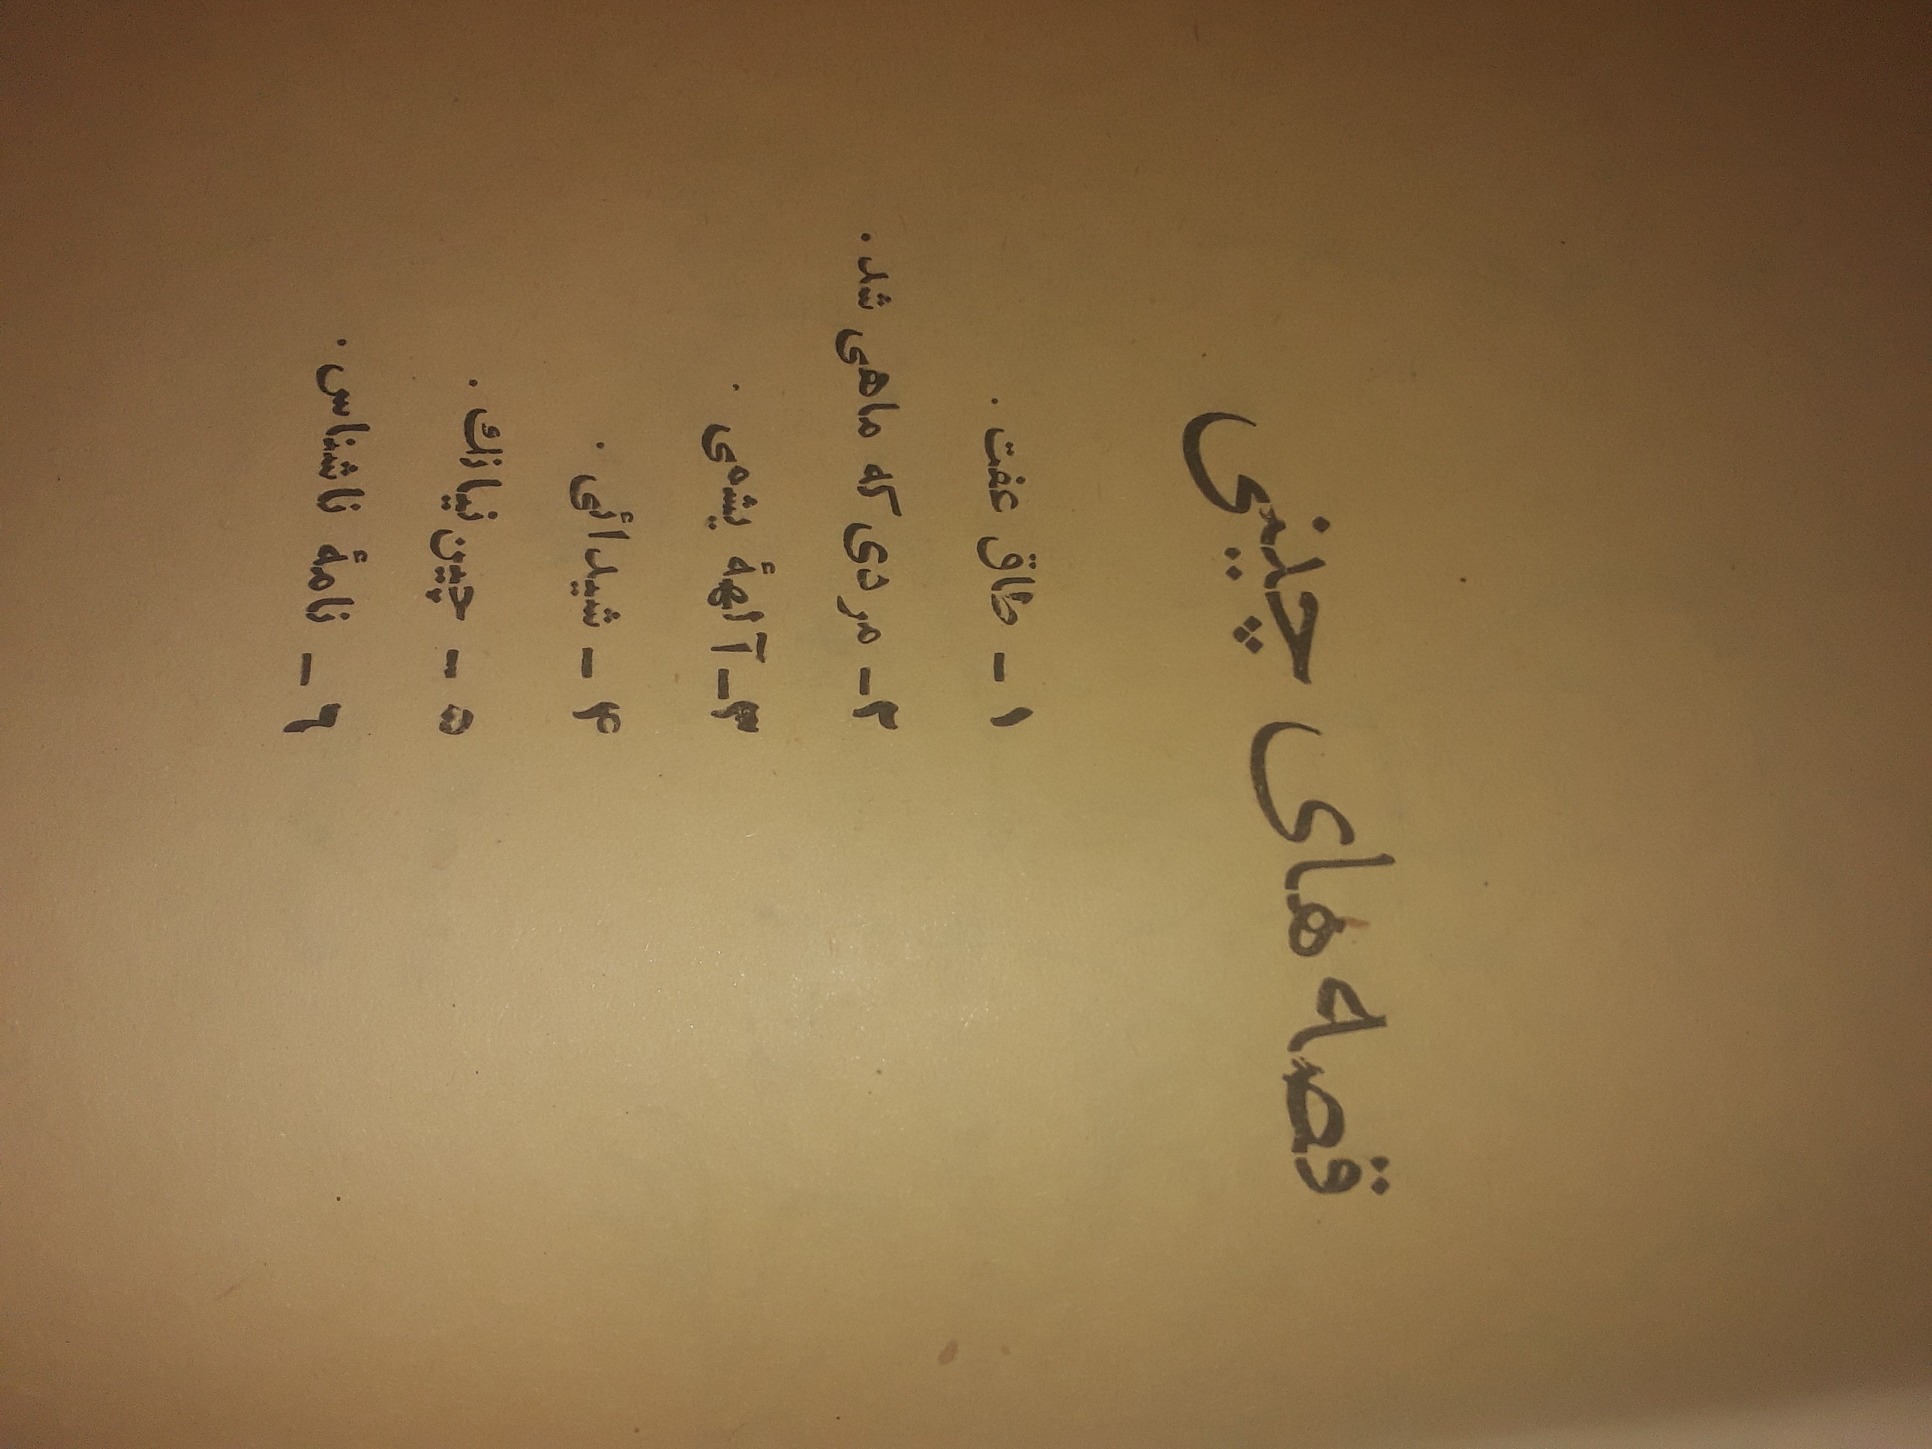 قصه های چینی
۱ - طاق عفت .
۲ - مردی که ماهی شد .
۳ - آلههٔ یشمی .
۴ - شیدائی .
۵ - چیین نیانك .
۶ - نامهٔ ناشناس .